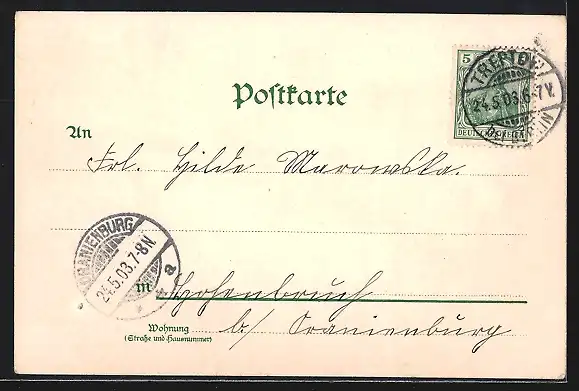 Postkarte
5
DEUTSCHES REICH
TREPTOW
24.5.03.6-7V.
An
Frl. Hilde Marowska.
ORANIENBURG
24.5.03.7-8N.
a
in Hohenbruch
Wohnung
(Straße und Hausnummer)
b/ Oranienburg